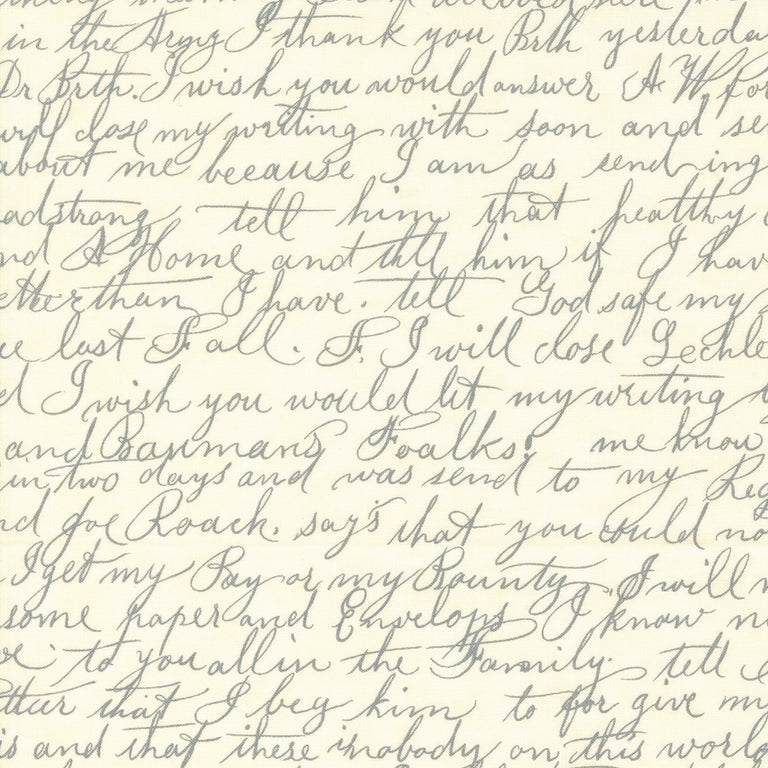 in the Army I thank you Brth yesterda
Dr Brth. I wish you would answer A W. for
will close my writing with soon and se
about me beecause I am as sending
adstrong tell him that healthy
nd A Home and till him if I hav
etter than I have. tell God safe my
ue last Fall. F. I will close Lechle
d I wish you would lit my writing
and Baumans Foalks. me know
in two days and was send to my Reg
nd Joe Roach. say's that you could no
I get my Pay or my Bounty I will
some paper and Envelops I know n
to you all in the Family. tell
that I beg him to for give my
is and that these inobody on this world